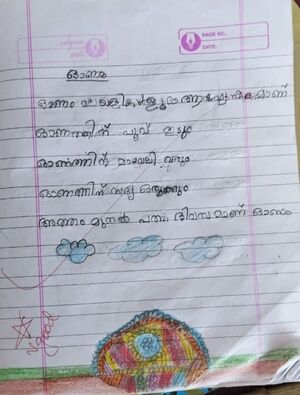 PAGE NO.
DATE:
ഓണം
ഓണം മലയാളികളുടെ ആഘോഷമാണ്
ഓണത്തിന് പൂവ് ഇടും
ഓണത്തിന് മാവേലി വരും
ഓണത്തിന് സദ്യ ഒരുക്കും
അത്തം മുതൽ പത്ത് ദിവസമാണ് ഓണം
V.good